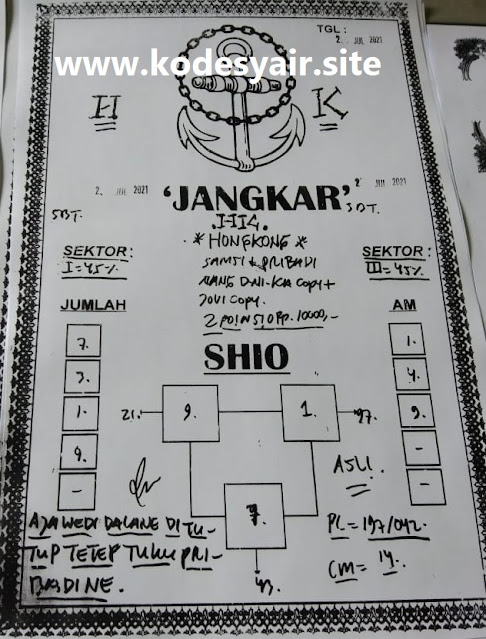 TGL :
2 JUL 2021
www.kodesyair.site
H K
2 JUL 2021
2 JUL 2021
'JANGKAR'
SDT.
* HONGKONG *
SEKTOR :
I = 45%
SEKTOR :
III = 45%
COPY +
JOVI COPY.
2 POIN 510 Rp. 10000,-
JUMLAH
AM
SHIO
7.
3.
1.
9.
-
1.
4.
9.
-
-
21.
9.
1.
97.
7.
43.
ASLI.
AJA WEDI DALANE DI TU-
TUP TETEP TUKU PRI-
BADINE.
PL = 197/042.
CM = 14.